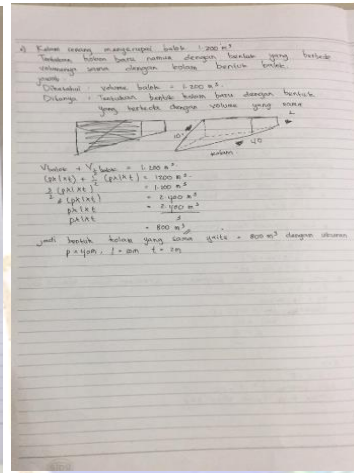 Kolam renang menyerupai balok 1.200 m³
Tentukan kolam baru namun dengan bentuk yang berbeda
volumenya sama dengan kolam bentuk balok.
jawab
Diketahui : volume balok = 1.200 m³.
Ditanya : Tentukan bentuk kolam baru dengan bentuk
yang berbeda dengan volume yang sama
10
40
V balok + V balok = 1.200 m³.
(p x l x t) + 1/2 (p x l x t) = 1200 m³.
3/2 (p x l x t) = 1.200 m³
3 (p x l x t) = 2.400 m³
p x l x t = 2.400 m³
3
p x l x t = 800 m³
jadi bentuk kolam yang sama yaitu = 800 m³ dengan ukuran
p = 40m, l = 10m t = 2m